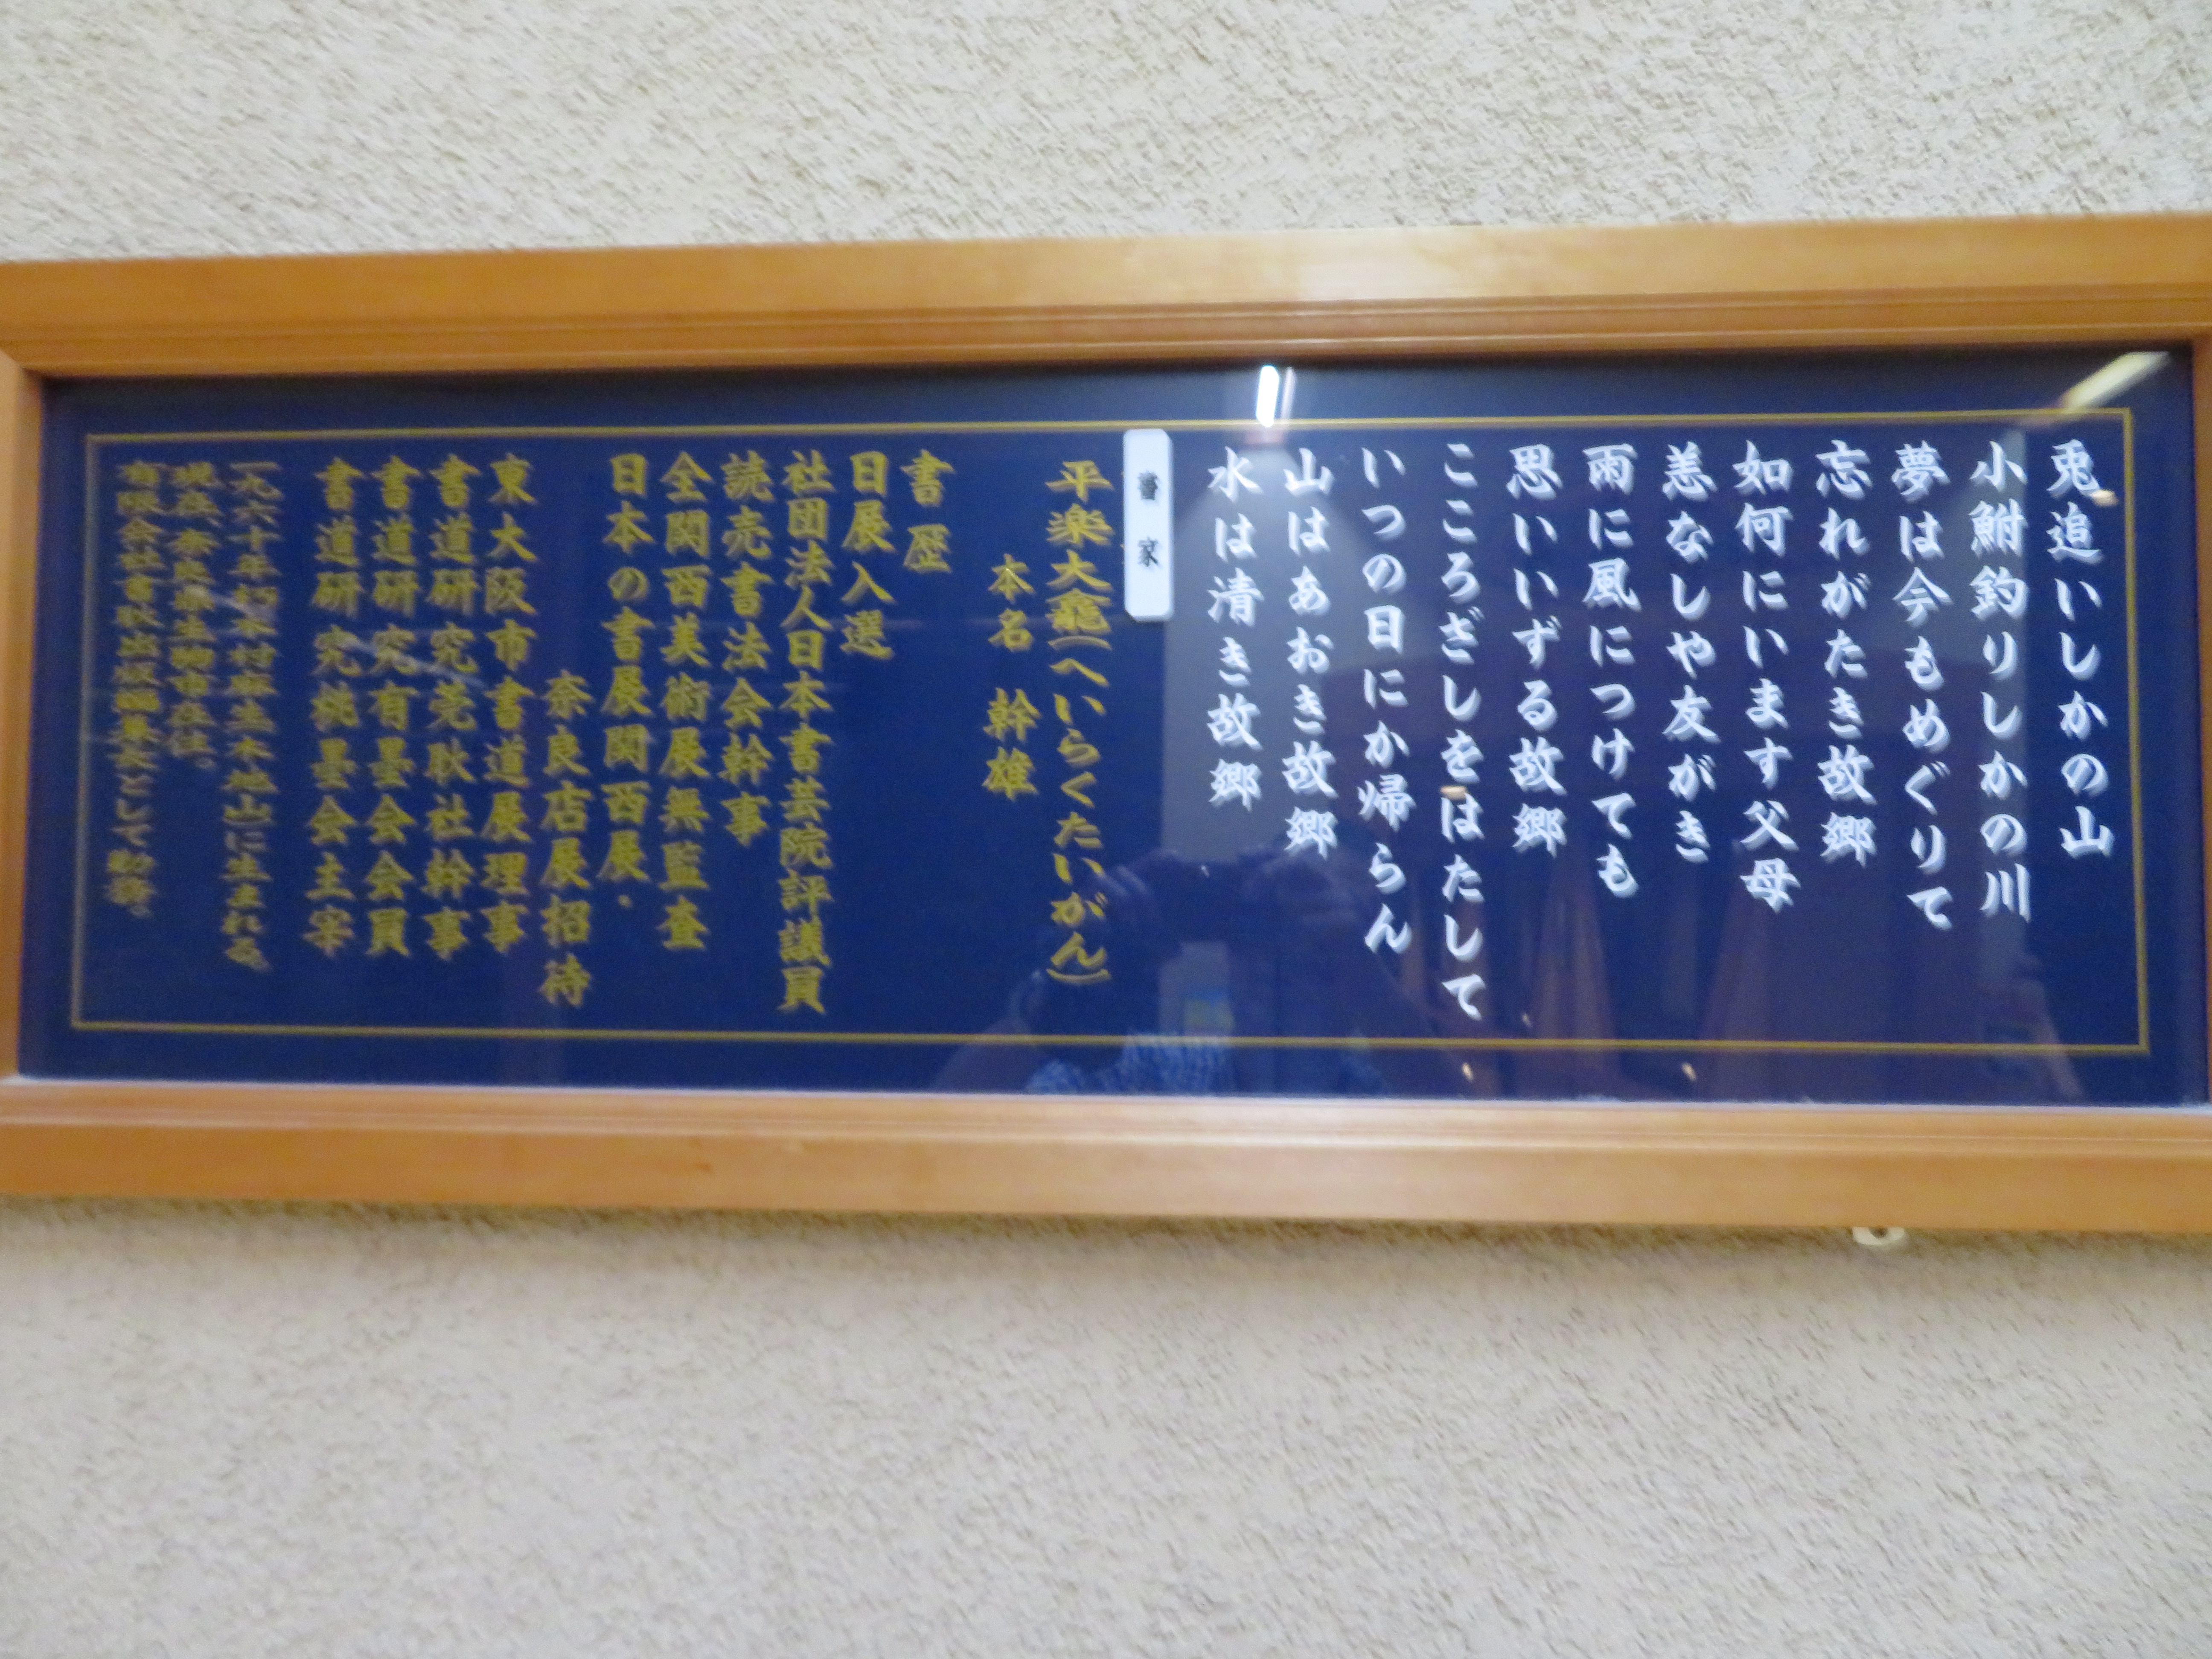 兎追いしかの山
小鮒釣りしかの川
夢は今もめぐりて
忘れがたき故郷
如何にいます父母
恙なしや友がき
雨に風につけても
思いいずる故郷
こころざしをはたして
いつの日にか帰らん
山はあおき故郷
水は清き故郷
書家
平楽大龕(へいらくたいがん)
本名 幹雄
書歴
日展入選
社団法人日本書芸院評議員
読売書法会幹事
全関西美術展無監査
日本の書展関西展・
奈良店展招待
東大阪市書道展理事
書道研究莞耿社幹事
書道研究有墨会会員
書道研究桃墨会主宰
に生まれる。
現在、奈良県生駒市在住。
有限会社書耿出版編集長として勤務。